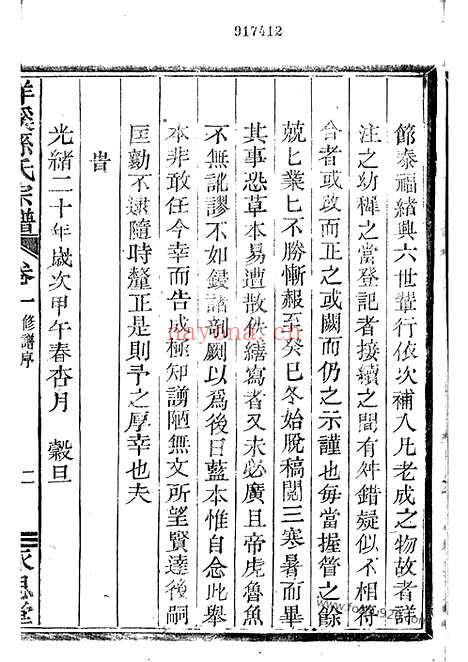 917412
節泰福緒興六世輩行依次補入凡老成之物故者詳
注之幼穉之當登記者接續之間有舛錯疑似不相符
合者或改而正之或闕而仍之示謹也每當握管之餘
兢兢業業不勝慚赧至癸巳冬始脫稿閱三寒暑而畢
其事恐草本易遭散佚繕寫者又未必廣且帝虎魯魚
不無訛謬不如鋟諸剞劂以爲後日藍本惟自念此舉
本非敢任今幸而告成極知譾陋無文所望賢達後嗣
匡勷不逮隨時釐正是則予之厚幸也夫
旹
光緒二十年歲次甲午春杏月 穀旦
洋溪孫氏宗譜 卷一 修譜序 二 永思堂
nayona.cn